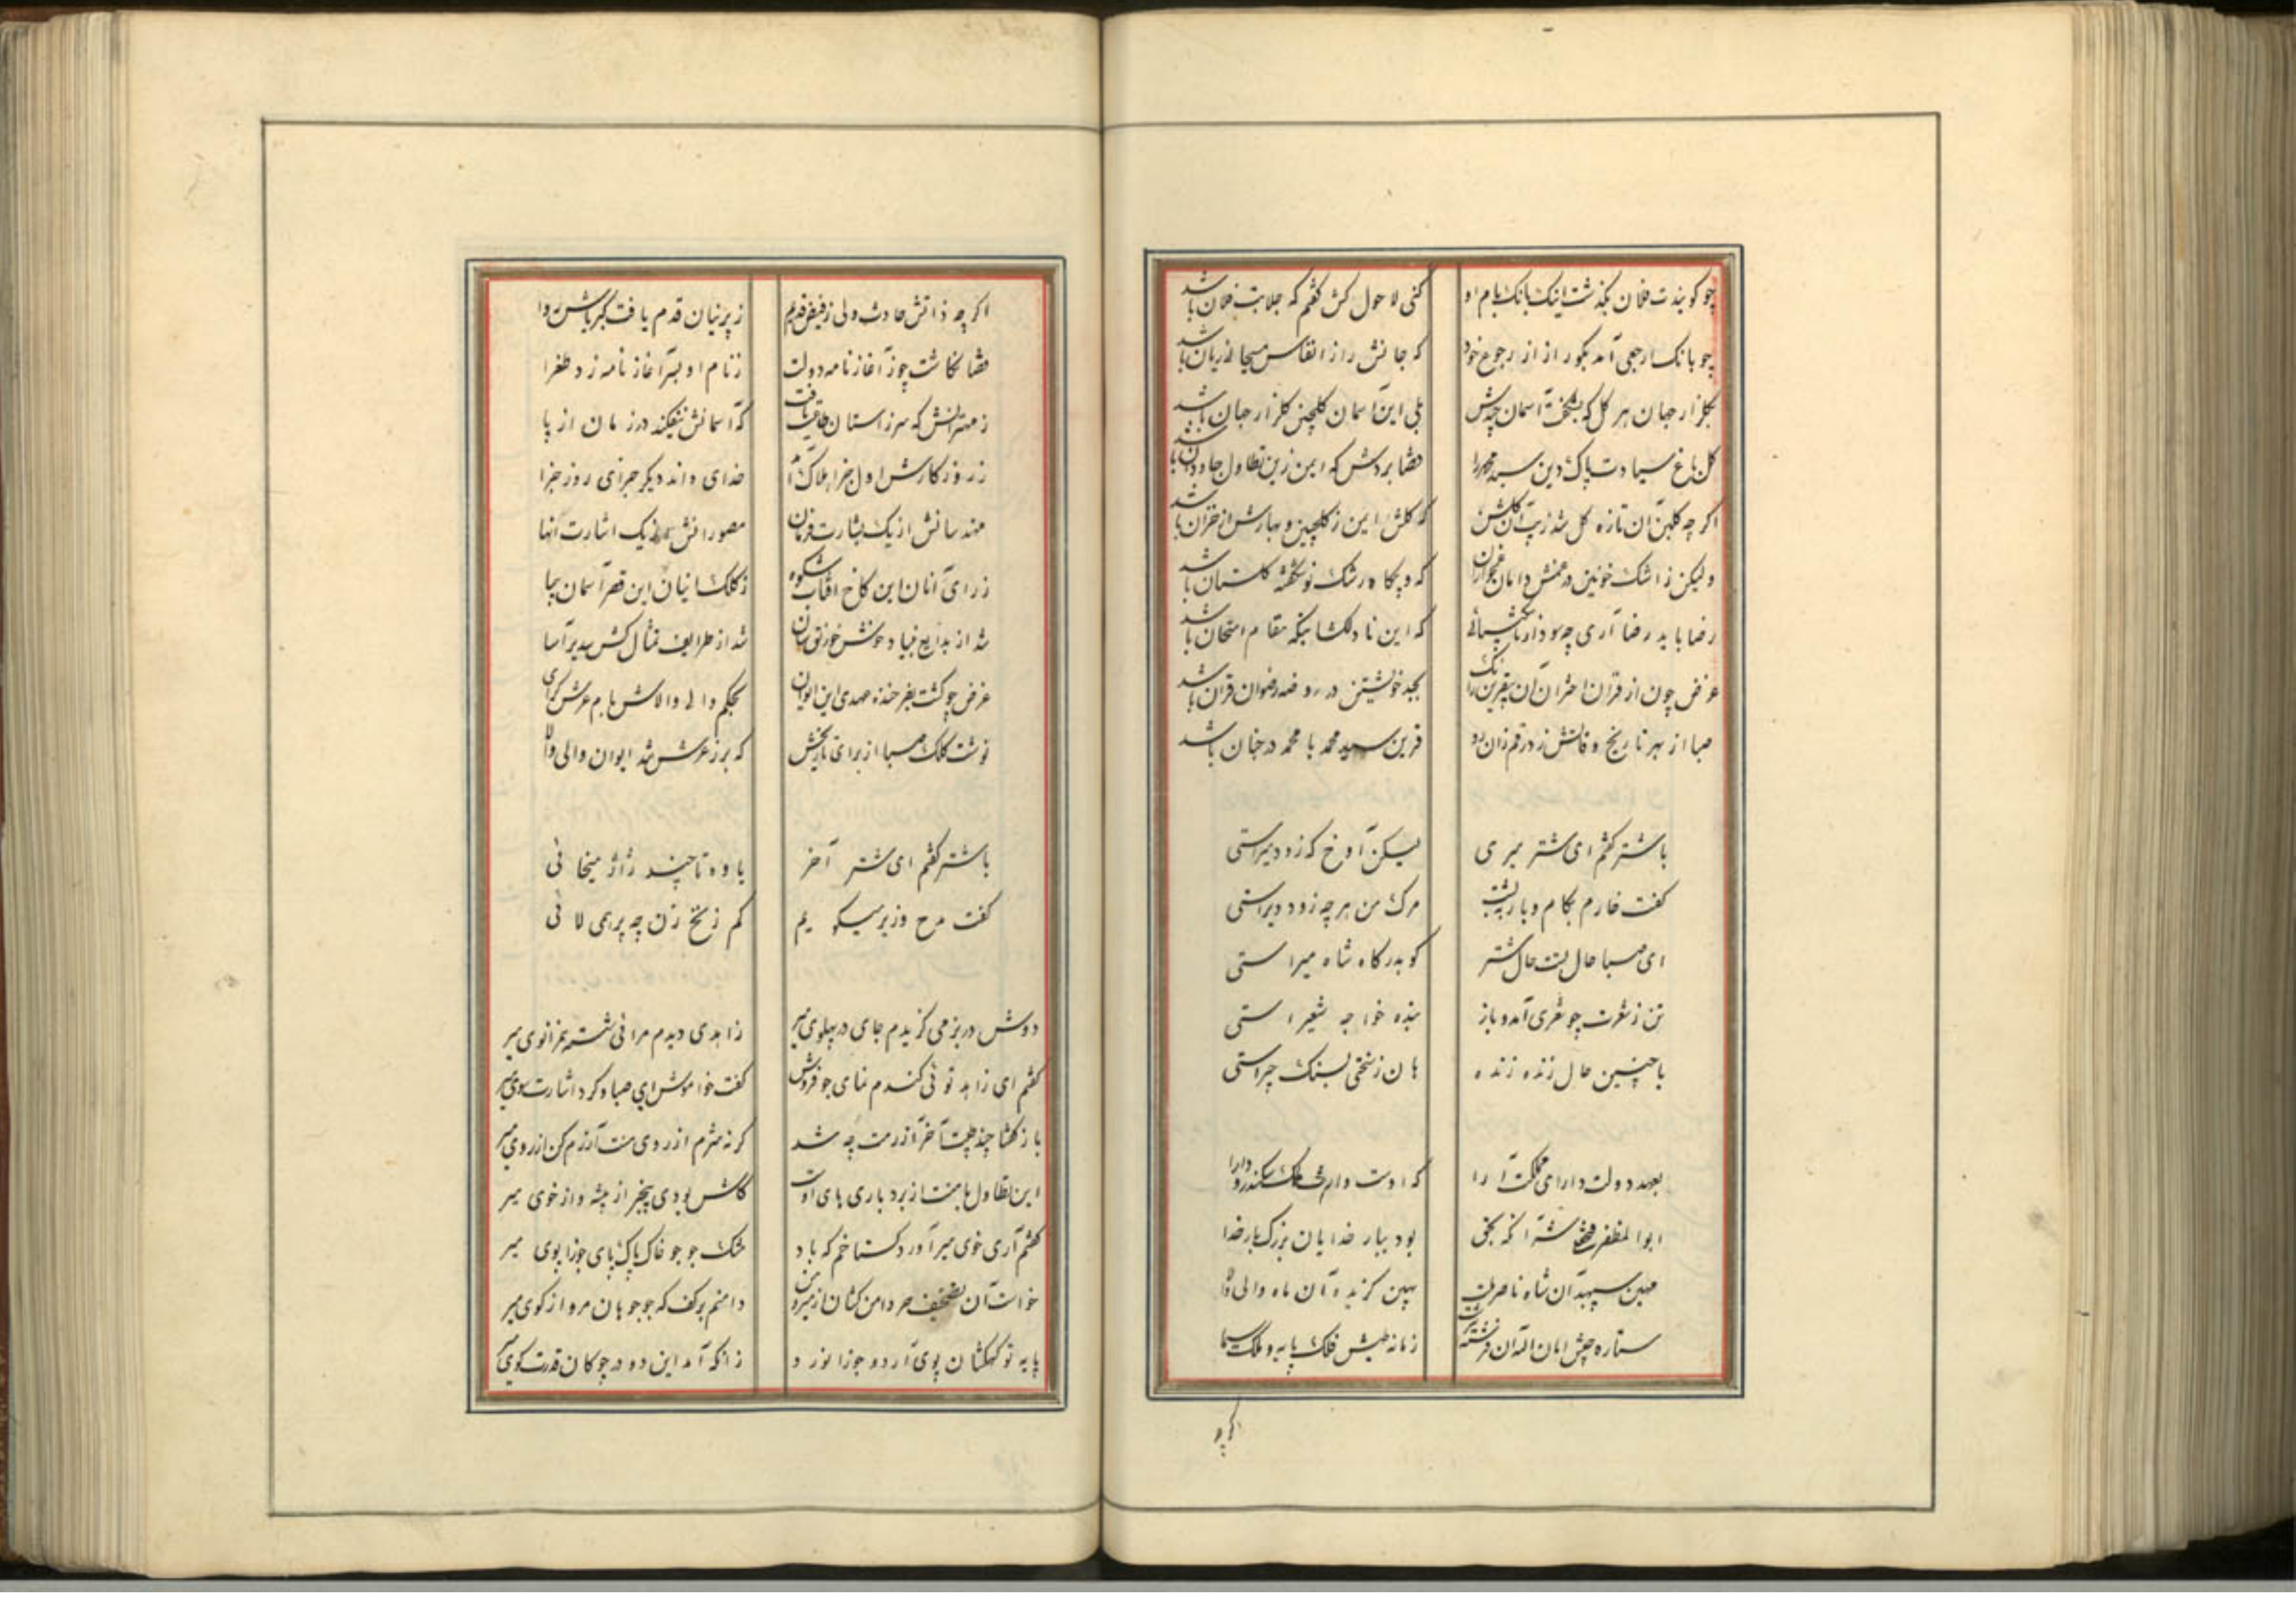 چو گویندت فلان بگذشت اینک بانک بام او
کنی لاحول کش گفتم که جلابت فلان باشد
چو بانک ارجعی آمد بگور از از رجوع خود
که جانش را ز انفاس مسیحا زیان باشد
بگلزار جهان هر گل که بشکفت آسمان چیدش
بلی این آسمان گلچین گلزار جهان باشد
گل باغ سیادت پاک دین سید محمد را
قضا بردش که ایمن زین تطاول جاودان باشد
اگر چه گلبن آن تازه گل شد زیب آن گلشن
که گلش این ز گلچین و بهارش از خزان باشد
ولیکن ز اشک خونین در غمش دامان
که دیگاه رشک نوشکفته گلستان باشد
رضا باید رضا آری چه سود از
که این نا دلکشا بنگه مقام امتحان باشد
غرض چون از قران اختران آن
بجد خویشتن در روضه رضوان قران باشد
صبا از بهر تاریخ وفاتش زد رقم زان رو
قرین سید محمد با محمد در جنان باشد
با شتر گفتم ای شتر میری
لیکن آوخ که زود میراستی
گفت خارم بکام و بار به پشت
مرک من هر چه زود دیراستی
ای صبا حال تست حال شتر
کو بدرگاه شاه میراستی
تن ز شعرت چو شعری آمد و باز
بنده خواجه شعیراستی
با چنین حال زنده زنده
هان ز سختی بسنک چیراستی
بعهد دولت دارای مملکت آرا
که اوست وارث ملک سکندر و دارا
ابوالمظفر فتحعلی شه آنکه بحق
بود ببار خدایان بزرگ بار خدا
مهین سپهبد آن شاه ناصر
بهین گزیده آن ماه والی والا
ستاره جیش امان الله آن فرشته
زمانه طیش فلک پایه و ملک سیما
اگرچه
اگر چه ذاتش حادث ولی ز فیض قدم
ز پرنیان قدم یافت کبریاش ردا
قضا نگاشت چو ز آغاز نامه دولت
ز نام او بسر آغاز نامه زد طغرا
ز مهترانش که سر ز آستان یافت
که آسمانش نیفکند در زمان از پا
ز روزگارش اول جزا هلاک آمد
خدای داند دیگر جزای روز جزا
مهندسانش از یک بشارت فرمان
مصورانش از یک اشارت انها
ز رای آنان این کاخ آفتاب شکوه
ز کلک اینان این قصر آسمان پیما
شد از بدایع بنیاد خوش خورنق سان
شد از طرایف تمثال کش سدیر آسا
غرض چو گشت بفرخنده مهدی این ایوان
بحکم والی والاش بام عرش گرای
نوشت کلک صبا از برای تاریخش
که برز عرش شد ایوان والی والا
با شتر گفتم ای شتر آخر
یاوه تا چند ژاژ میخائی
گفت مدح وزیر میگویم
کم زنخ زن چه پر همی لائی
دوش در بزمی گزیدم جای در پهلوی میر
زاهدی دیدم مرائی شسته بر زانوی میر
گفتم ای زاهد توئی گندم نمای جو فروش
گفت خاموش ای صبا و کرد اشارت سوی میر
باز گفتا چند چیت آخر آزرمت چه شد
گر نه شرم از روی منت آزرم کن از روی میر
این تطاول بامنت از بردباری های اوست
کاش بودی بیخبر از پیشه و از خوی میر
گفتم آری خوی میر آورد گستاخم که باد
مشک جو جو خاک پاک پای جوزا پوی میر
خواست آن دامن کشان از میر و من
دامنم بر کف که جوجو هان مرو از کوی میر
پایه تو کهکشان پوی آرد و جوزا نورد
زانکه آمد این دو در چوگان قدرت گوی میر